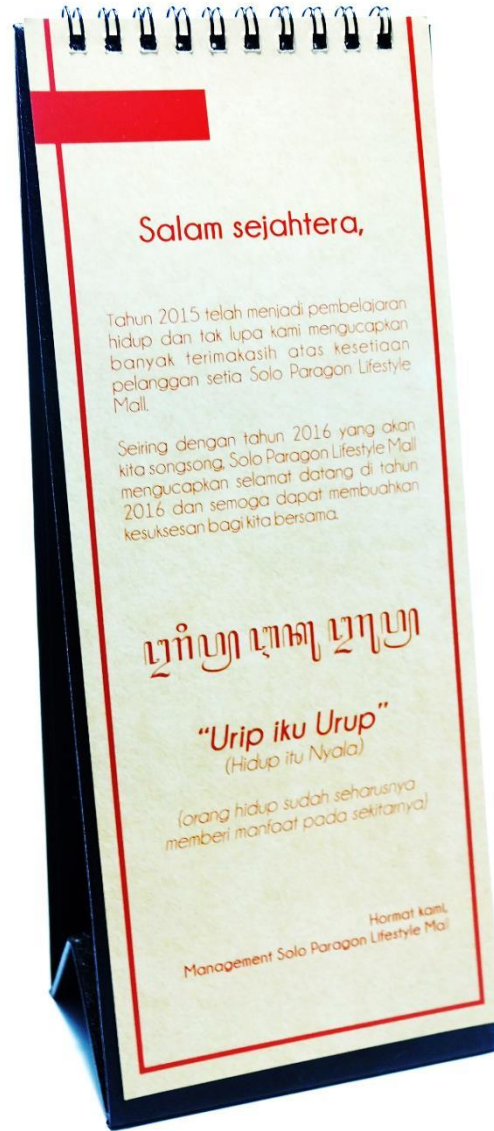 Salam sejahtera,
Tahun 2015 telah menjadi pembelajaran
hidup dan tak lupa kami mengucapkan
banyak terimakasih atas kesetiaan
pelanggan setia Solo Paragon Lifestyle
Mall.
Seiring dengan tahun 2016 yang akan
kita songsong, Solo Paragon Lifestyle Mall
mengucapkan selamat datang di tahun
2016 dan semoga dapat membuahkan
kesuksesan bagi kita bersama.
“Urip iku Urup”
(Hidup itu Nyala)
(orang hidup sudah seharusnya
memberi manfaat pada sekitarnya)
Hormat kami,
Management Solo Paragon Lifestyle Mall